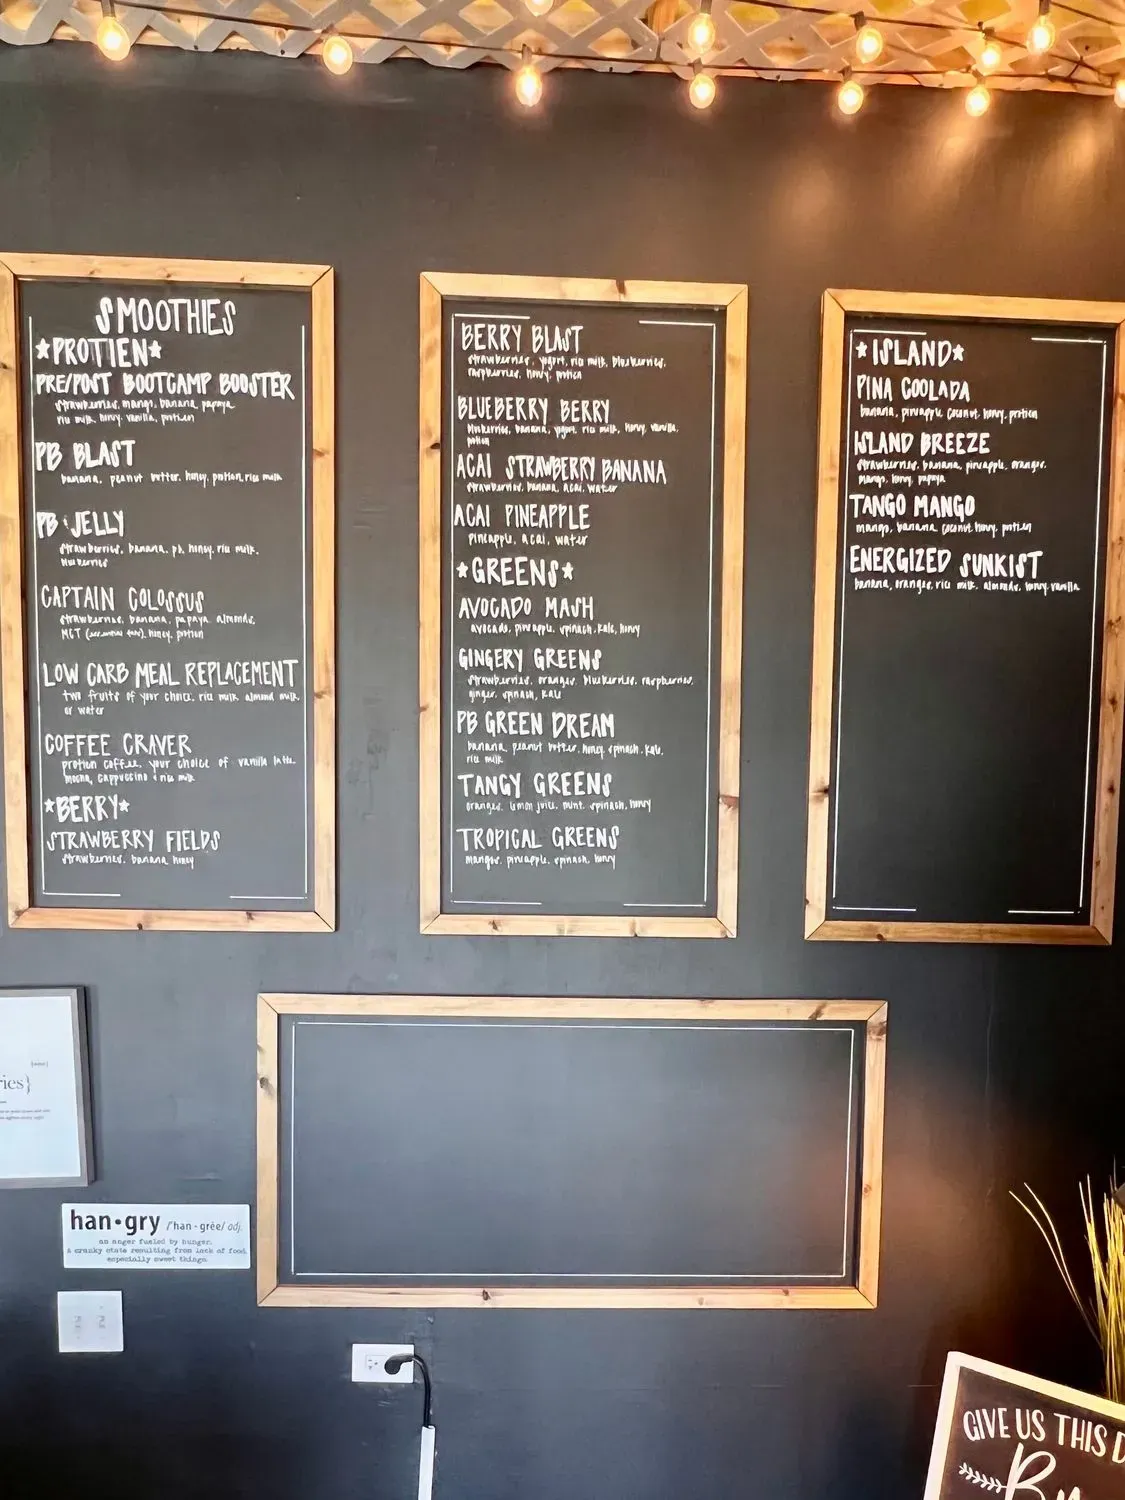 SMOOTHIES
*PROTIEN*
PRE/POST BOOTCAMP BOOSTER
strawberries, mango, banana, papaya
rice milk, honey, vanilla, protien
PB BLAST
banana, peanut butter, honey, protien, rice milk
PB & JELLY
strawberries, banana, pb, honey, rice milk,
blueberries
CAPTAIN COLOSSUS
strawberries, banana, papaya, almonds,
MCT (essential fats), honey, protien
LOW CARB MEAL REPLACEMENT
two fruits of your choice, rice milk almond milk,
or water
COFFEE CRAVER
protien coffee, your choice of vanilla latte,
mocha, cappuccino & rice milk
*BERRY*
STRAWBERRY FIELDS
strawberries, banana honey
BERRY BLAST
strawberries, yogurt, rice milk, blueberries,
raspberries, honey, protien
BLUEBERRY BERRY
blueberries, banana, yogurt, rice milk, honey, vanilla,
protien
ACAI STRAWBERRY BANANA
strawberries, banana, acai, water
ACAI PINEAPPLE
pineapple, acai, water
*GREENS*
AVOCADO MASH
avocado, pineapple, spinach, kale, honey
GINGERY GREENS
strawberries, oranges, blueberries, raspberries,
ginger, spinach, kale
PB GREEN DREAM
banana, peanut butter, honey, spinach, kale,
rice milk
TANGY GREENS
oranges, lemon juice, mint, spinach, honey
TROPICAL GREENS
mangos, pineapple, spinach, honey
*ISLAND*
PINA COOLADA
banana, pineapple, coconut, honey, protien
ISLAND BREEZE
strawberries, banana, pineapple, oranges,
mango, honey, papaya
TANGO MANGO
mango, banana, coconut, honey, protien
ENERGIZED SUNKIST
banana, oranges, rice milk, almonds, honey, vanilla
ries}
han•gry /'han-grēe/ adj.
an anger fueled by hunger.
a cranky state resulting from lack of food,
especially sweet things.
GIVE US THIS D